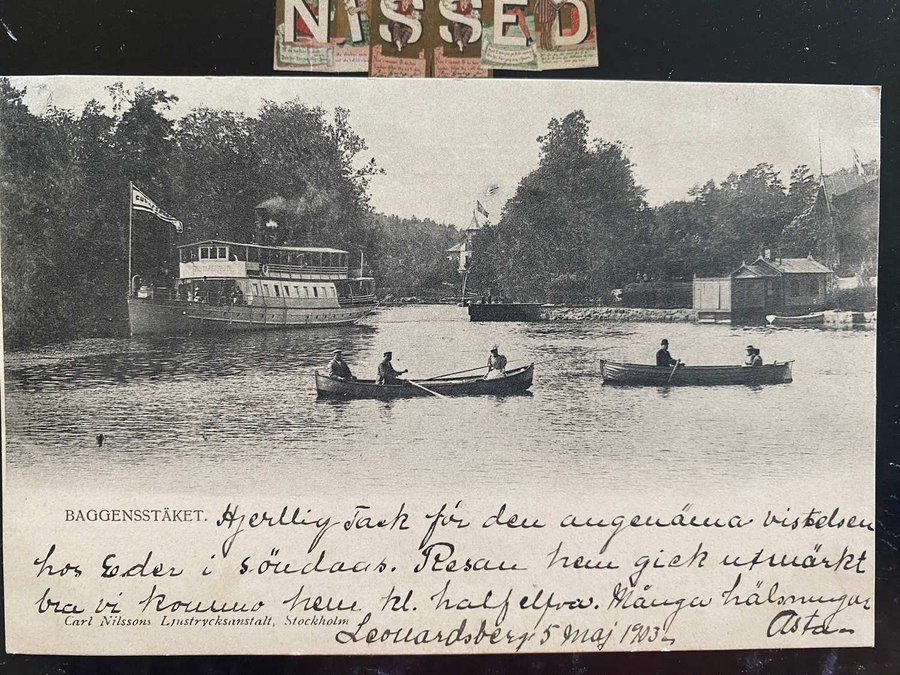 NISSED
BAGGENSSTÄKET.
Hjertlig Tack för den angenäma vistelsen
hos Eder i söndags. Resan hem gick utmärkt
bra vi kommo hem kl. half elfva. Många hälsningar
Carl Nilssons Ljustrycksanstalt, Stockholm
Leonardsberg 5 Maj 1903 Asta